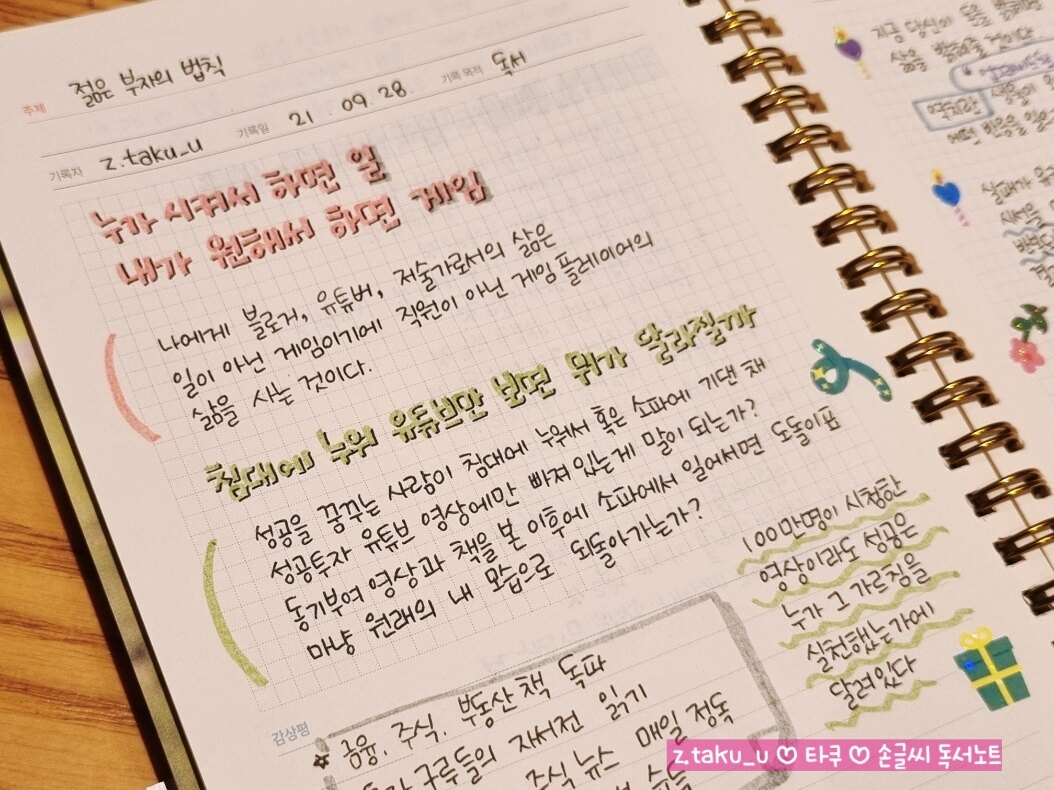 주제 젊은 부자의 법칙
기록자 z.taku_u 기록일 21. 09. 28. 기록 목적 독서
누가 시켜서 하면 일
내가 원해서 하면 게임
나에게 블로거, 유튜버, 저술가로서의 삶은
일이 아닌 게임이기에 직원이 아닌 게임 플레이어의
삶을 사는 것이다.
침대에 누워 유튜브만 보면 뭐가 달라질까
성공을 꿈꾸는 사람이 침대에 누워서 혹은 소파에 기댄 채
성공투자 유튜브 영상에만 빠져있는게 말이 되는가?
동기부여 영상과 책을 본 이후에 소파에서 일어서면 도돌이표
마냥 원래의 내 모습으로 되돌아가는가?
100만명이 시청한
영상이라도 성공은
누가 그 가르침을
실천했는가에
달려있다
감상평
금융, 주식, 부동산 책 독파
구루들의 자서전 읽기
주식 뉴스 매일 정독
지금 당신이
삶을
z.taku_u ♡ 타쿠 ♡ 손글씨 독서노트